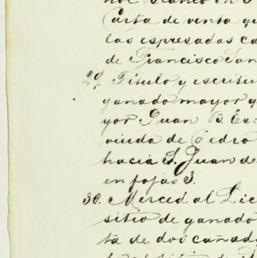 Carta de venta qu
las espresadas ca
de Francisco San
29. Título y escritu
ganado mayor q
yor Juan B. Es
viuda de Pedro
hacia S. Juan de
en fojas 3.
30. Merced al Lic
sitio de ganado
ta de dos cañad